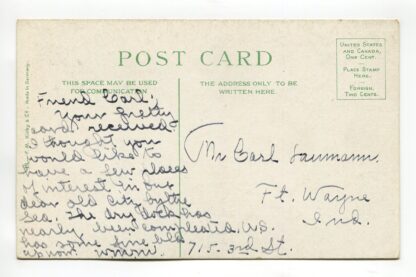 POST CARD
THIS SPACE MAY BE USED
FOR COMMUNICATION
THE ADDRESS ONLY TO BE
WRITTEN HERE.
UNITED STATES
AND CANADA,
ONE CENT.
PLACE STAMP
HERE.
FOREIGN,
TWO CENTS.
Made in Germany.
Friend Carl;
Your pretty
card received
I thought you
would like to
have a few places
of interest in our
dear old City by the
Sea. The dry dock has
nearly been completed, we
has some fine bld
up now.
Mr Carl
Ft. Wayne
Ind.
715-3rd St.